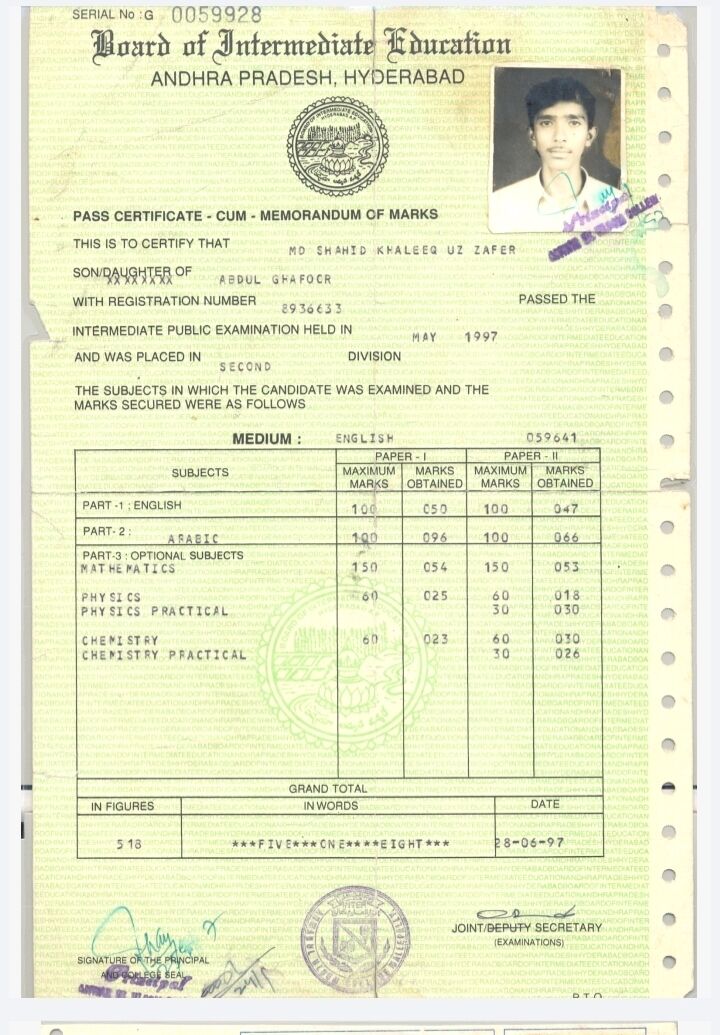 SERIAL No : G 0059928
Board of Intermediate Education
ANDHRA PRADESH, HYDERABAD
PASS CERTIFICATE - CUM - MEMORANDUM OF MARKS
THIS IS TO CERTIFY THAT MD SHAHID KHALEEQ UZ ZAFER
SON/DAUGHTER OF ABDUL GHAFOCR
XXXXXXXX
WITH REGISTRATION NUMBER 8936633 PASSED THE
INTERMEDIATE PUBLIC EXAMINATION HELD IN MAY 1997
AND WAS PLACED IN SECOND DIVISION
THE SUBJECTS IN WHICH THE CANDIDATE WAS EXAMINED AND THE
MARKS SECURED WERE AS FOLLOWS
MEDIUM : ENGLISH 059641
SUBJECTS PAPER - I PAPER - II
MAXIMUM MARKS MARKS OBTAINED MAXIMUM MARKS MARKS OBTAINED
PART -1 : ENGLISH 100 050 100 047
PART- 2 : ARABIC 100 096 100 066
PART-3 : OPTIONAL SUBJECTS
MATHEMATICS 150 054 150 053
PHYSICS 60 025 60 018
PHYSICS PRACTICAL 30 030
CHEMISTRY 60 023 60 030
CHEMISTRY PRACTICAL 30 026
GRAND TOTAL
IN FIGURES IN WORDS DATE
518 ***FIVE***CNE****EIGHT*** 28-06-97
JOINT/DEPUTY SECRETARY
(EXAMINATIONS)
SIGNATURE OF THE PRINCIPAL
AND COLLEGE SEAL
Principal
P.T.O.